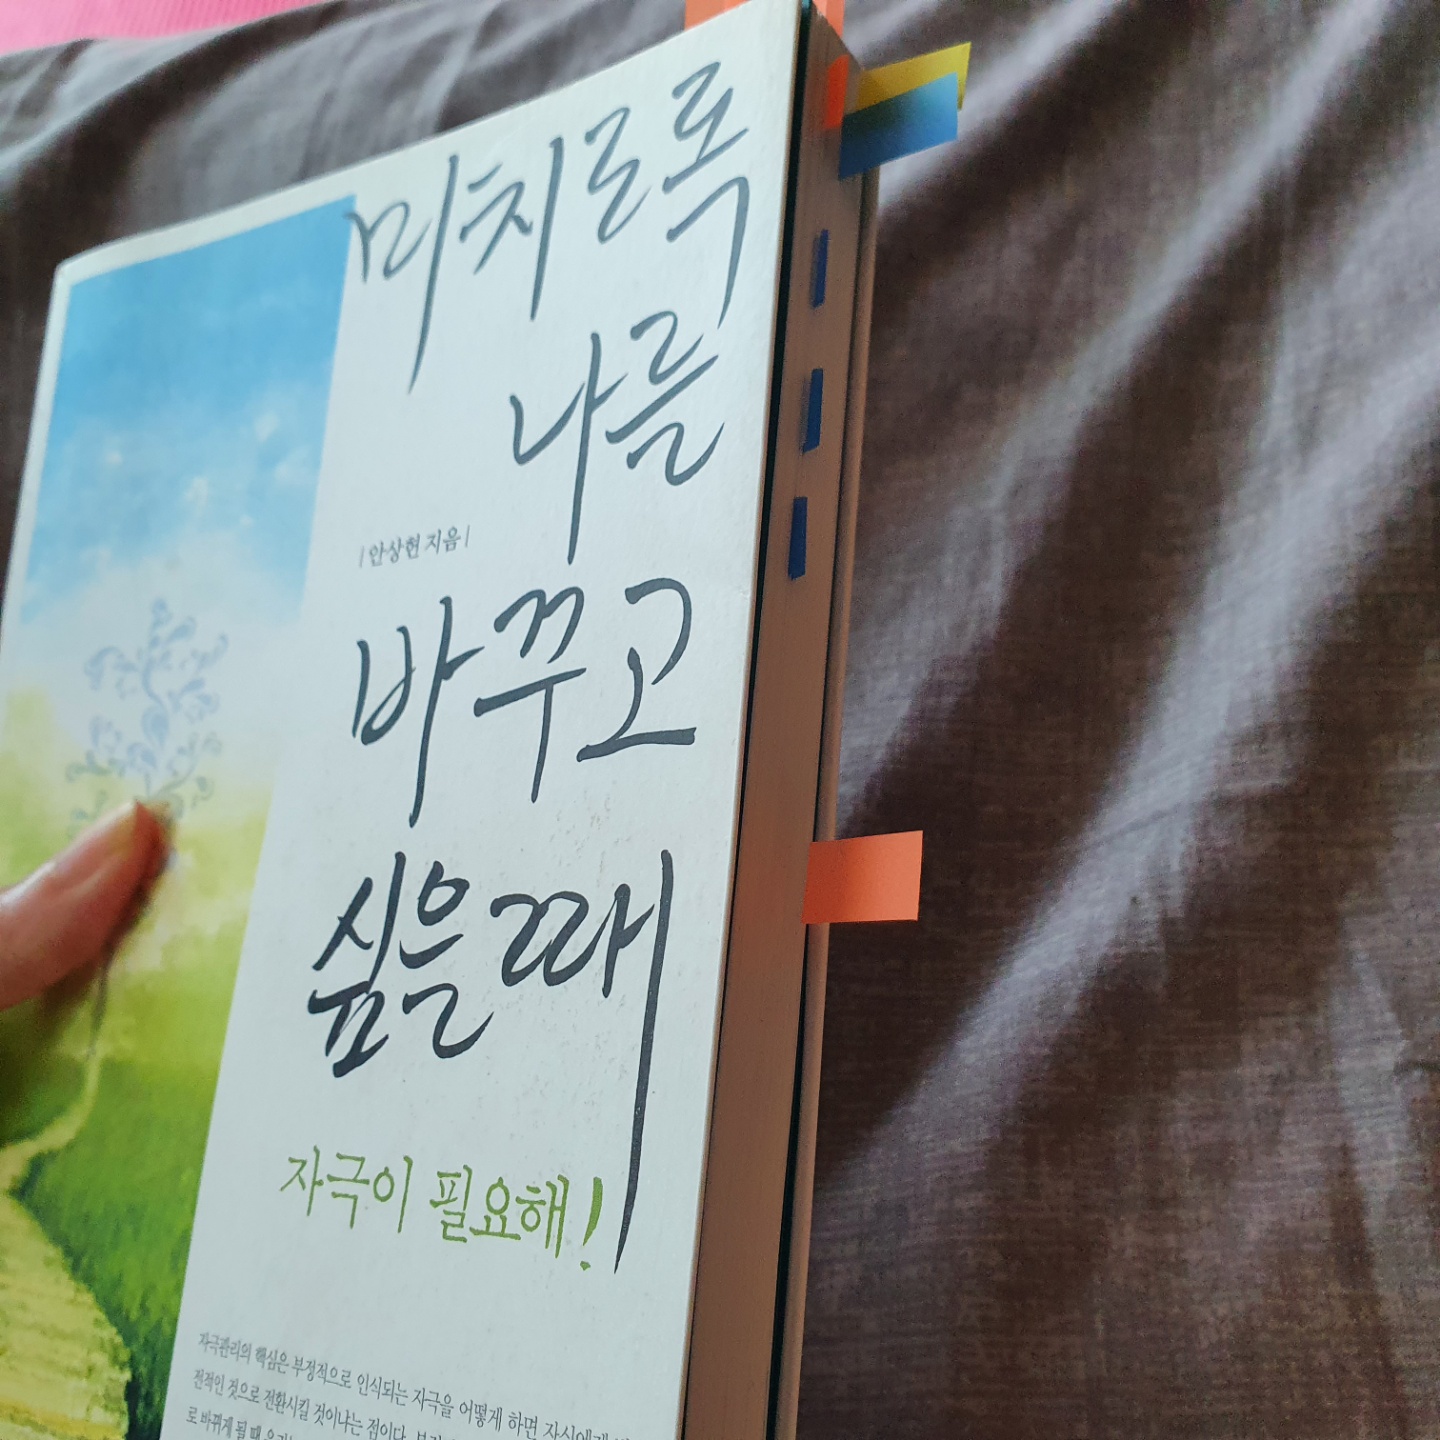 미치로록
나를
|안상현 지음|
바꾸고
싶은 때
자극이 필요해!
자극관리의 핵심은 부정적으로 인식되는 자극을 어떻게 하면 자신에게
전적인 것으로 전환시킬 것이냐는 점이다.
로 바뀌게 될 때